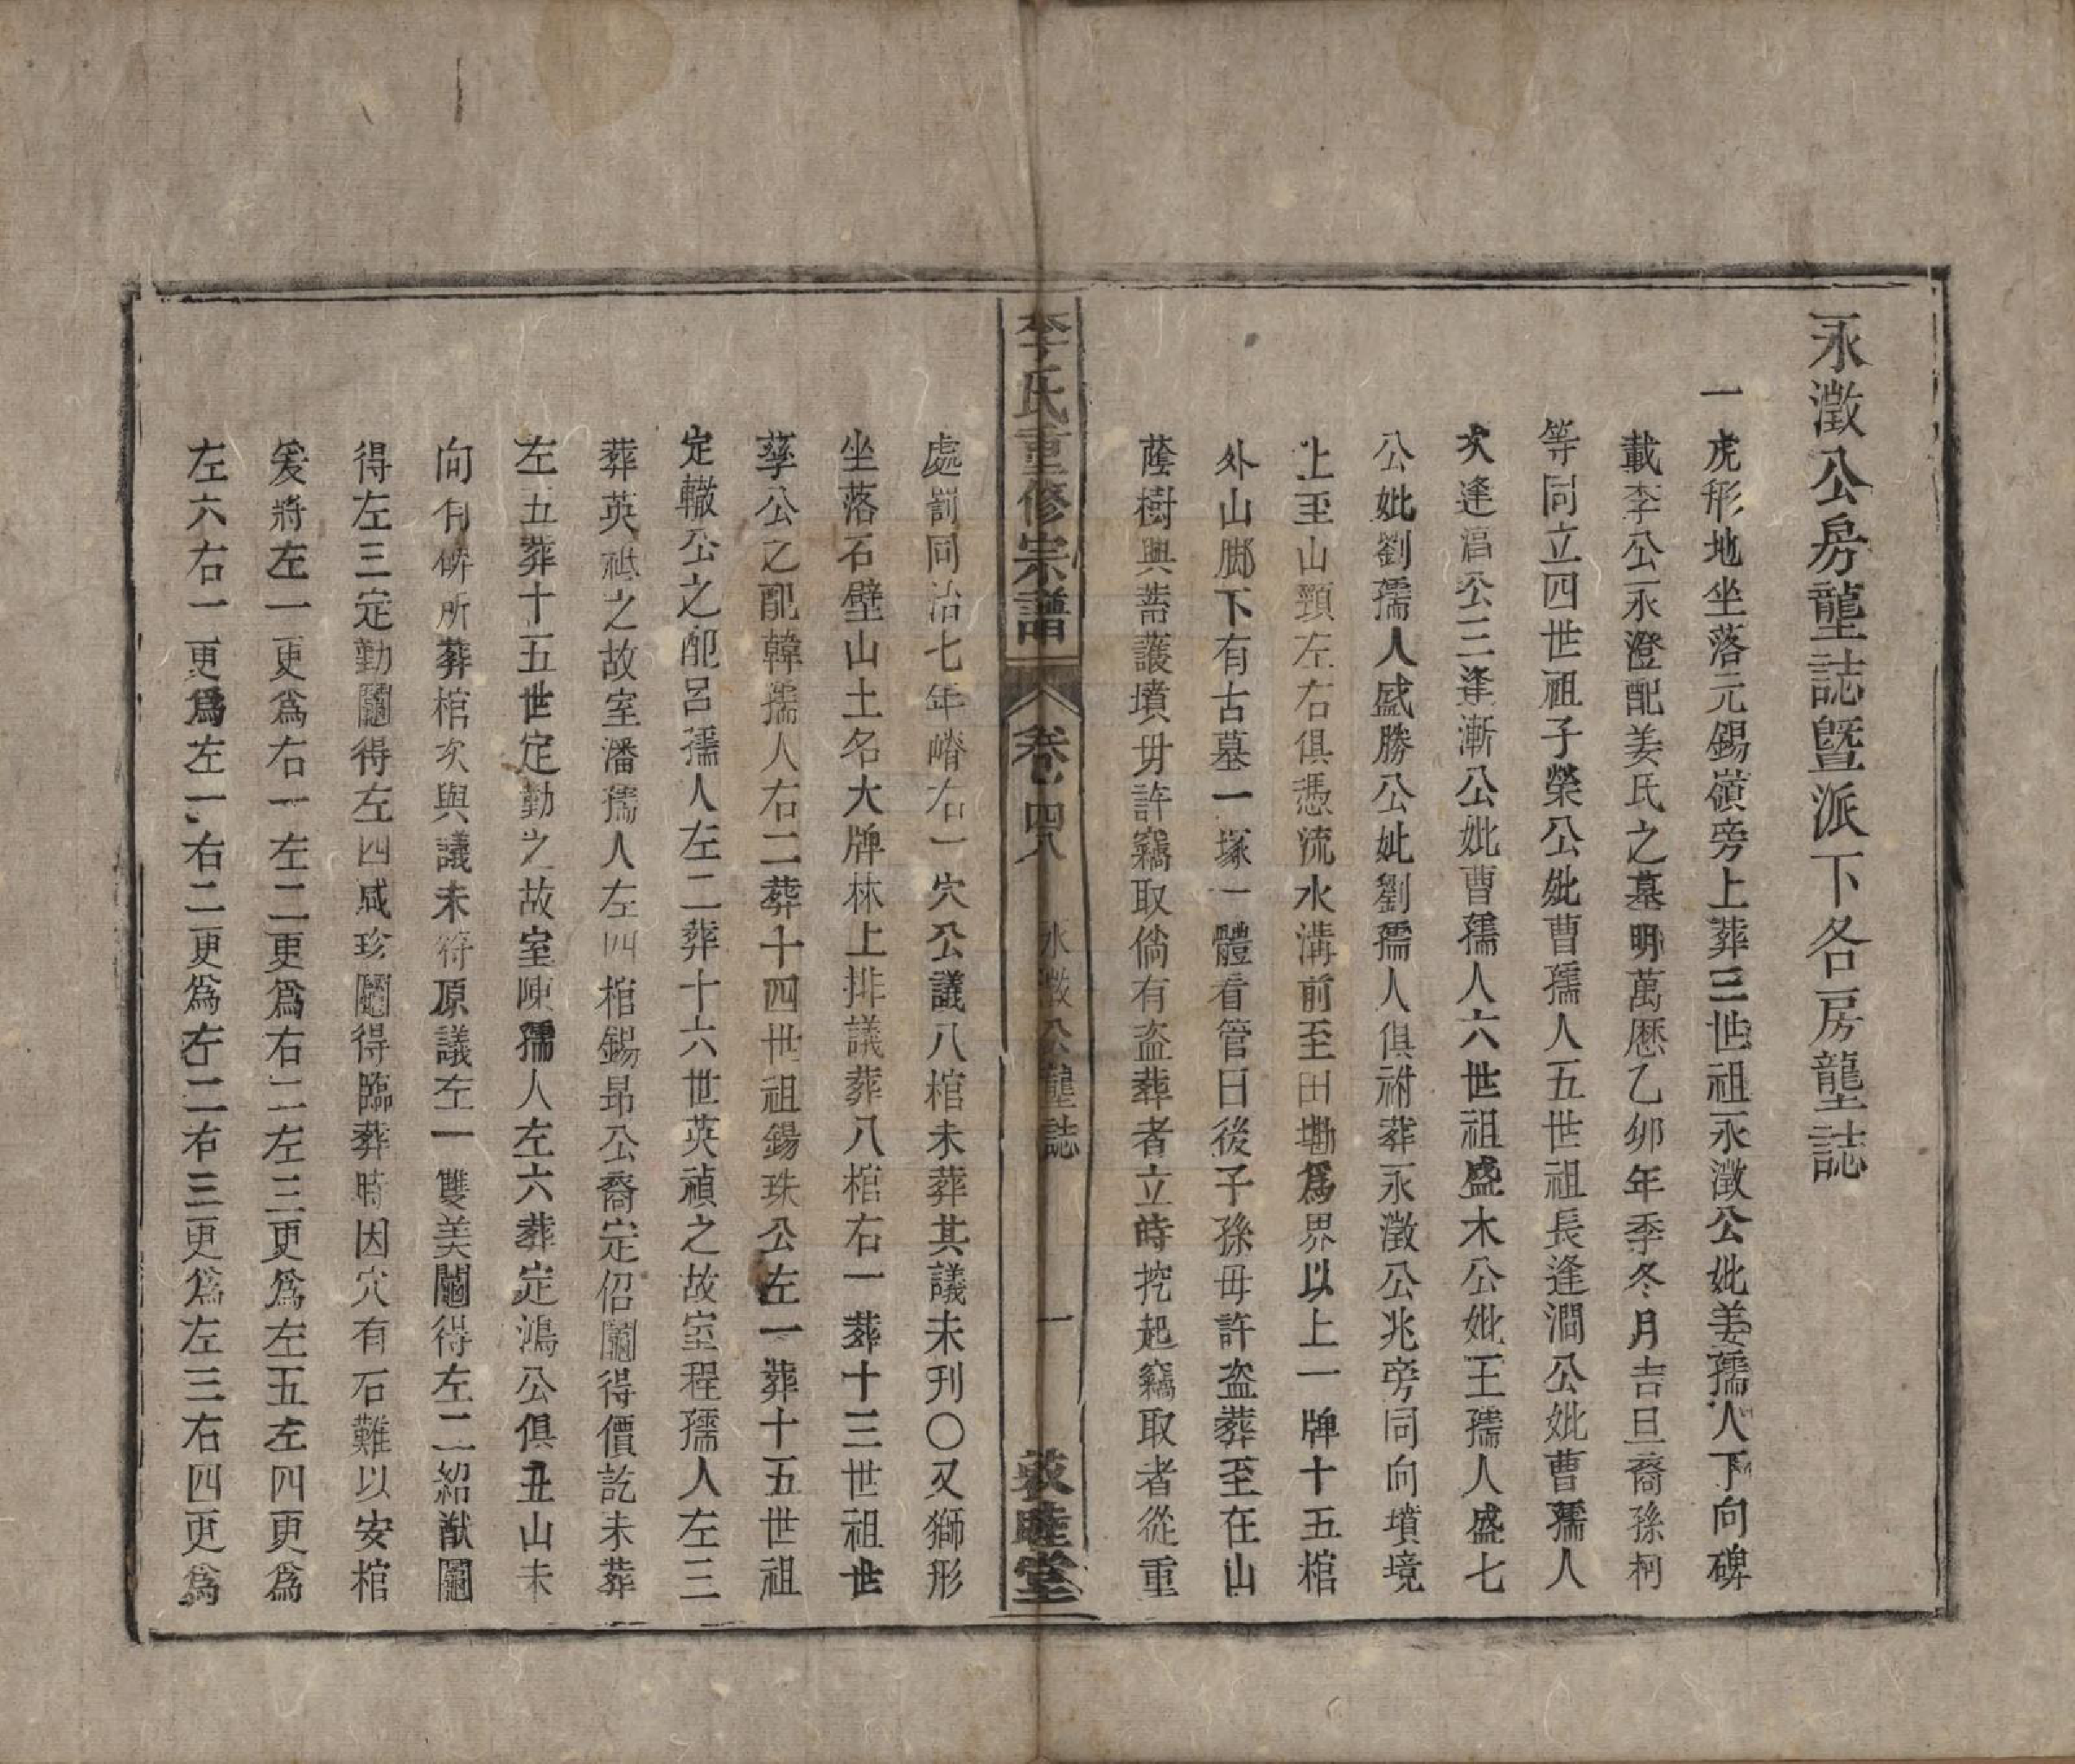 永澂公房壟誌曁派下各房壟誌
一虎形地坐落元錫嶺旁上葬三世祖永澂公妣姜孺人下向碑
載李公永澄配姜氏之墓明萬曆乙卯年季冬月吉旦裔孫柯
等同立四世祖子榮公妣曹孺人五世祖長逢澗公妣曹孺人
次逢滔公三逢漸公妣曹孺人六世祖盛木公妣王孺人盛七
公妣劉孺人盛勝公妣劉孺人俱祔葬永澂公兆旁同向墳境
上至山頸左右俱憑流水溝前至田墈爲界以上一牌十五棺
外山腳下有古墓一塚一體看管日後子孫毋許盜葬至在山
蔭樹興蓄護墳毋許竊取倘有盜葬者立時挖起竊取者從重
李氏重修宗譜 卷四八 永澂公壟誌 一 敦睦堂
處罰同治七年嵴右一穴公議八棺未葬其議未刋〇又獅形
坐落石壁山土名大牌林上排議葬八棺右一葬十三世祖世
孳公之配韓孺人右二葬十四世祖錫珠公左一葬十五世祖
定轍公之配呂孺人左二葬十六世英禎之故室程孺人左三
葬英祗之故室潘孺人左四棺錫昻公裔定佋鬮得價訖未葬
左五葬十五世定勤之故室陳孺人左六葬定鴻公俱丑山未
向有碑所葬棺次與議未符原議左一雙美鬮得左二紹猷鬮
得左三定勤鬮得左四咸珍鬮得臨葬時因穴有石難以安棺
爰將左一更爲右一左二更爲右二左三更爲左五左四更爲
左六右一更爲左一右二更爲左二右三更爲左三右四更爲